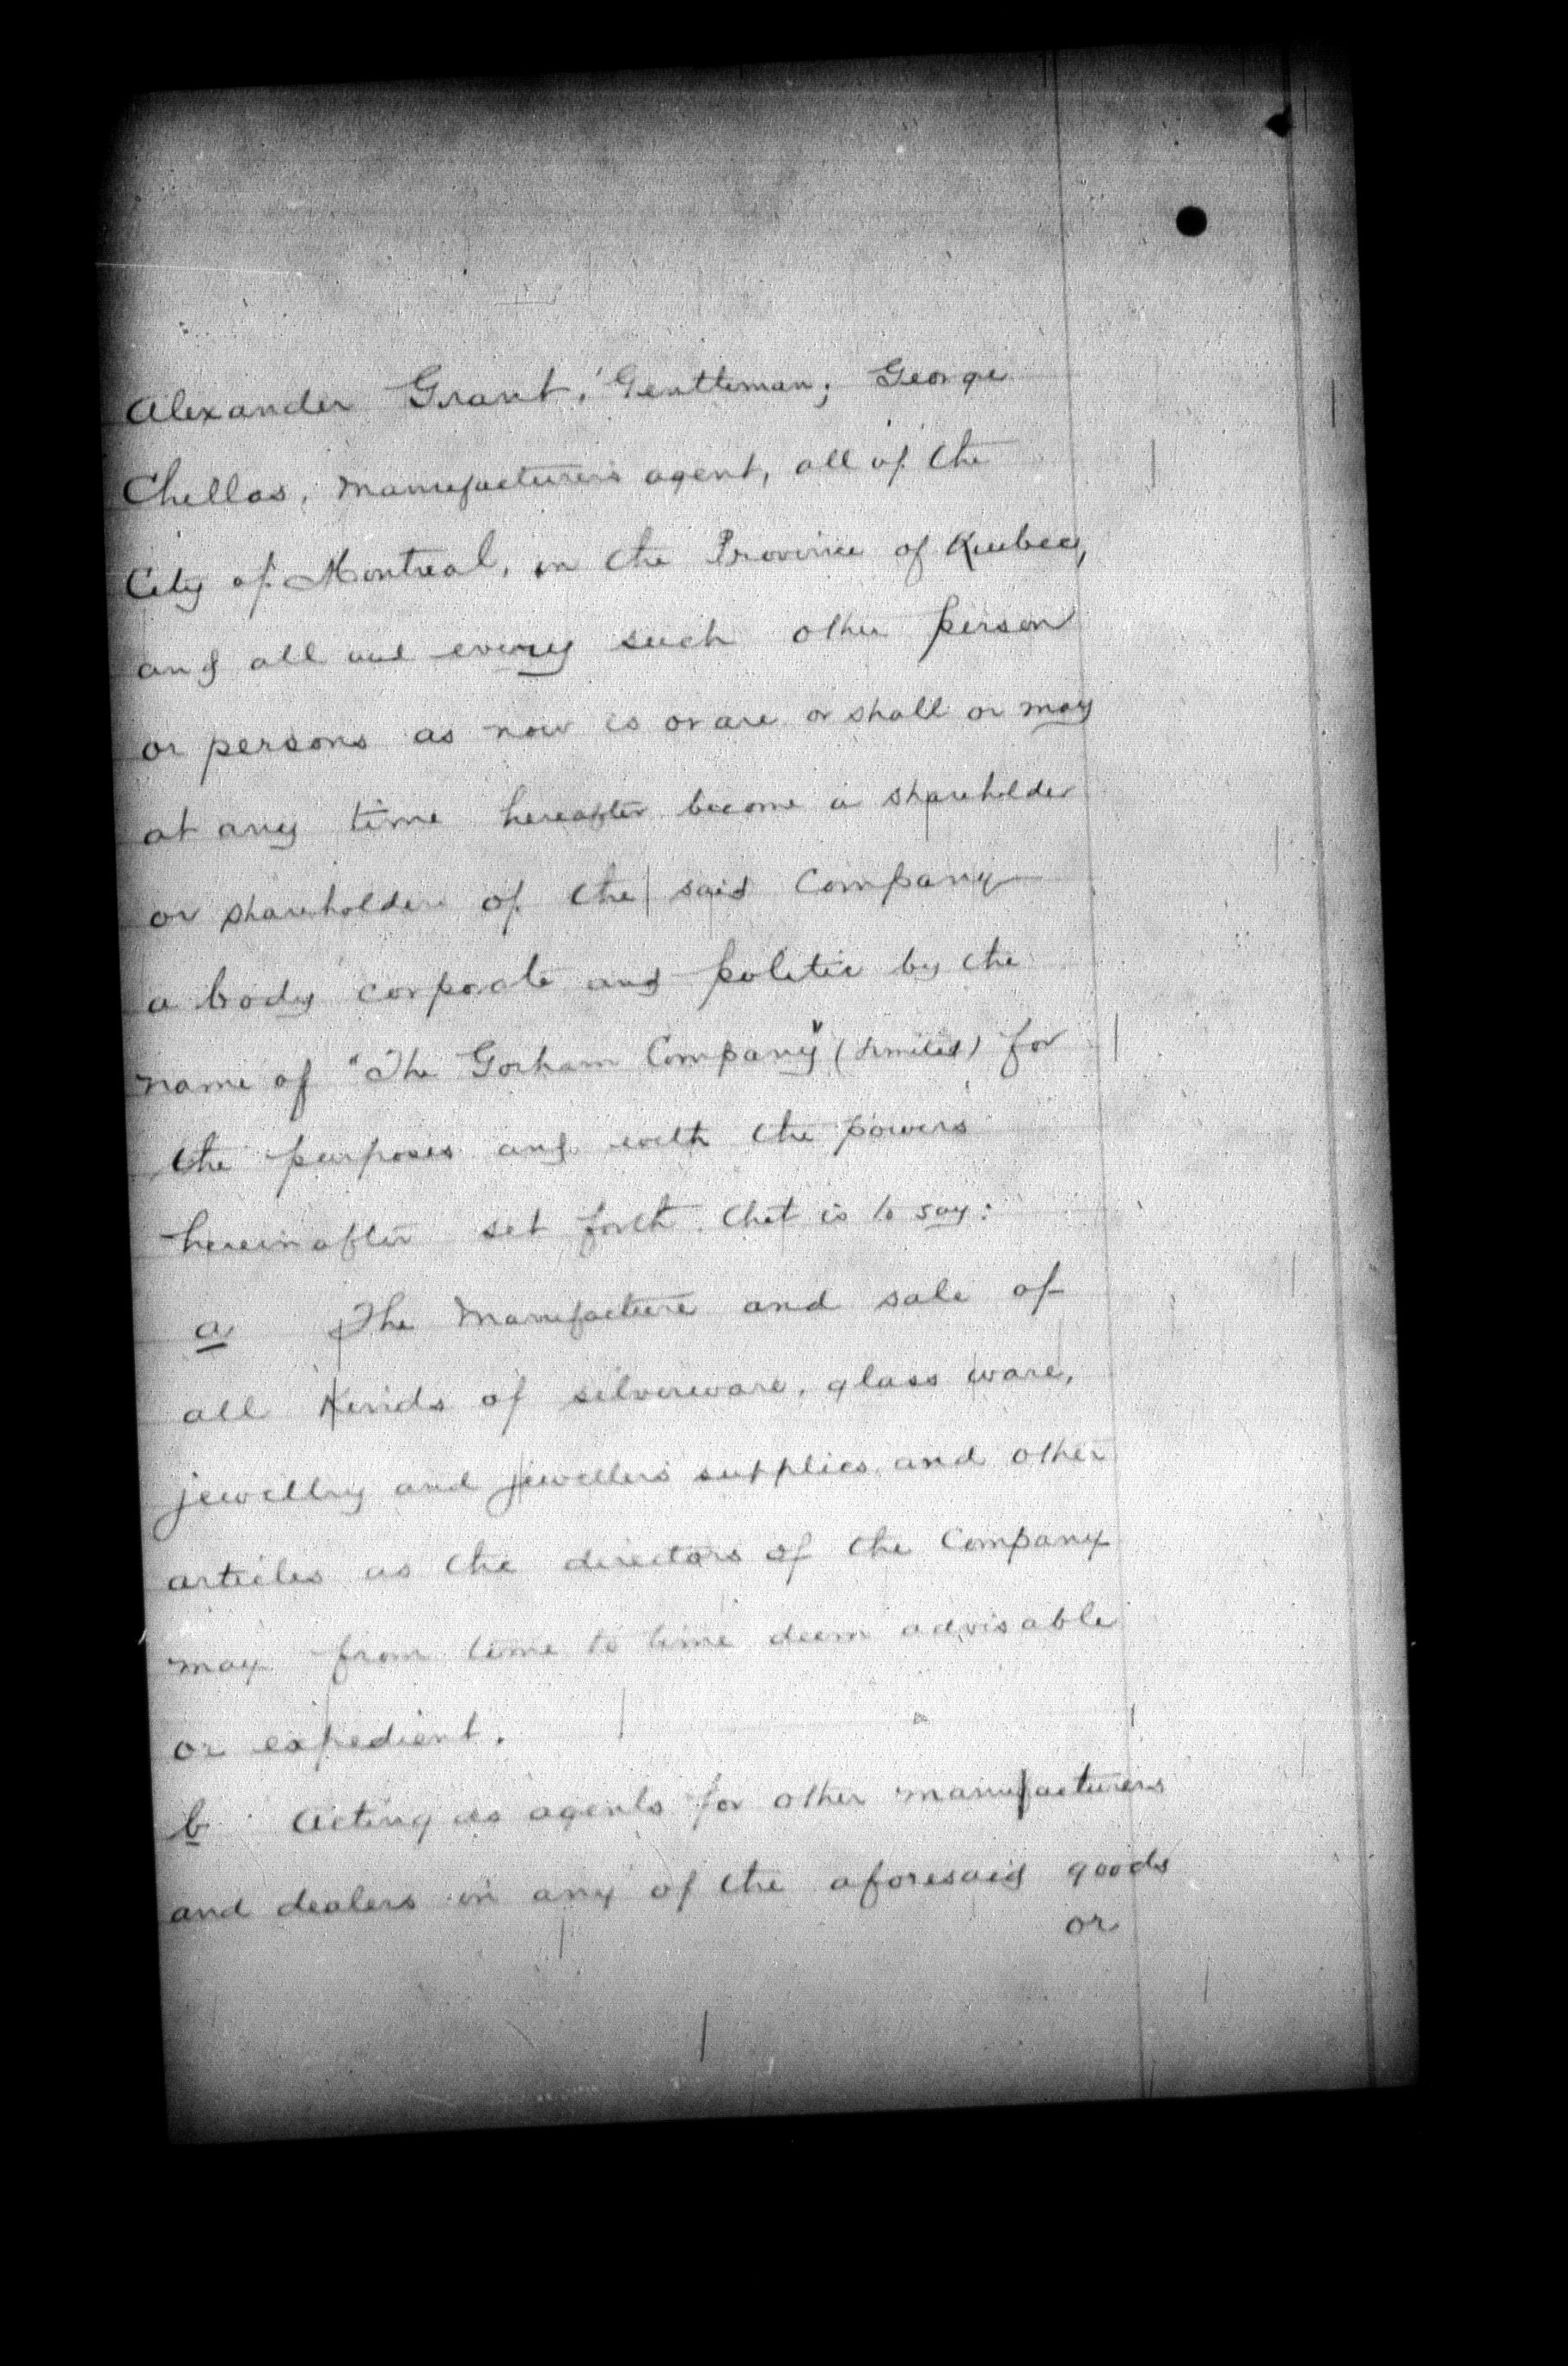 Alexander Grant, Gentleman; George
Chellas, manufacturers agent, all of the
City of Montreal, in the Province of Quebec,
and all and every such other person
or persons as now is or are or shall or may
at any time hereafter become a shareholder
or shareholders of the said Company
a body corporate and politic by the
name of "The Gorham Company" (Limited) for
the purposes and with the powers
hereinafter set forth that is to say:
a The manufacture and sale of
all kinds of silverware, glass ware,
jewellry and jewellers supplies and other
articles as the directors of the Company
may from time to time deem advisable
or expedient.
b Acting as agents for other manufacturers
and dealers in any of the aforesaid goods
or